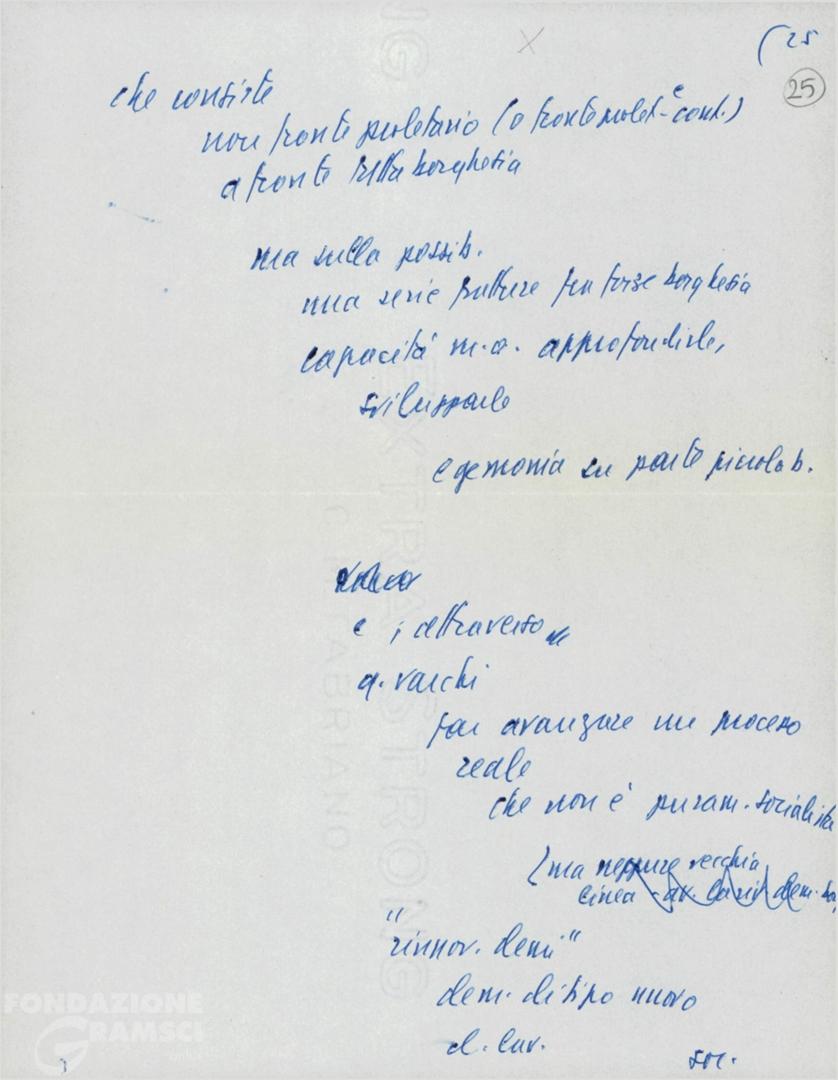 ( 25
25
che consiste
non fronte proletario (o fronte prolet-e cont.)
a fronte tutta borghesia
ma sulla possib.
una serie fratture fra forze borghesia
capacità m.o. approfondirle,
svilupparle
egemonia su parte piccola b.
e attraverso
q. varchi
far avanzare un processo
reale
che non è puram. socialista
(ma neppure vecchia
linea
"rinnov. dem."
dem. di tipo nuovo
soc.
FONDAZIONE
GRAMSCI
EXTRA STRONG
FABRIANO